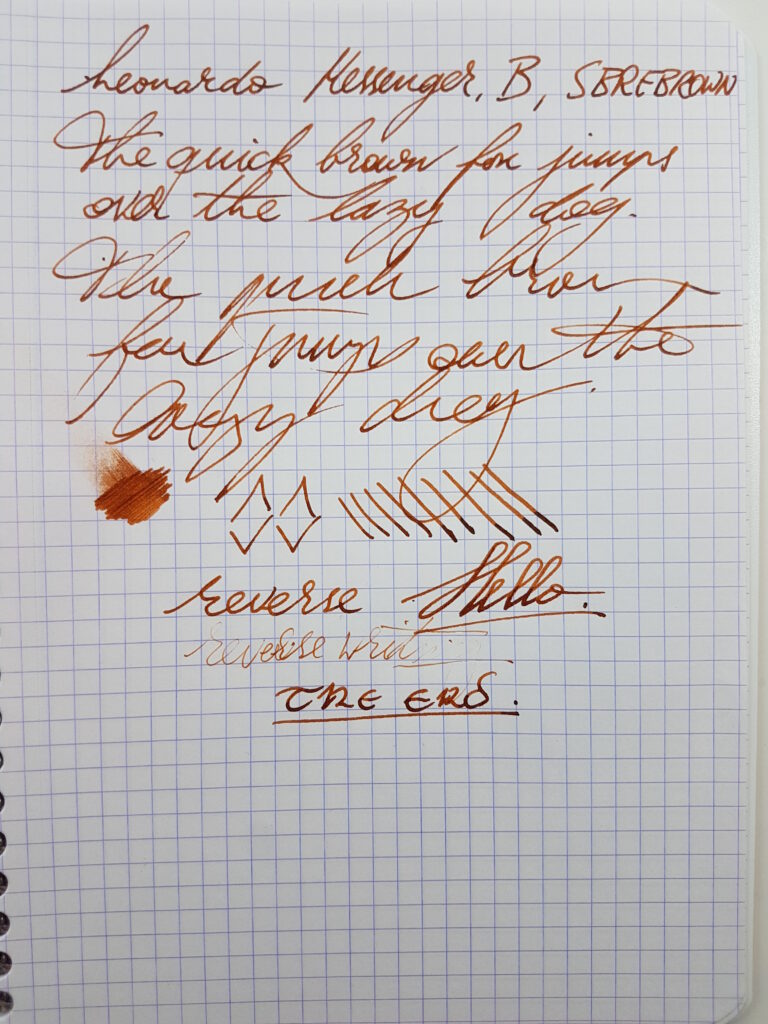 Leonardo Messenger, B, SBREBROWN
The quick brown fox jumps
over the lazy dog.
The quick brow
fox jumps over the
lazy dog.
reverse Hello.
reverse
THE END.